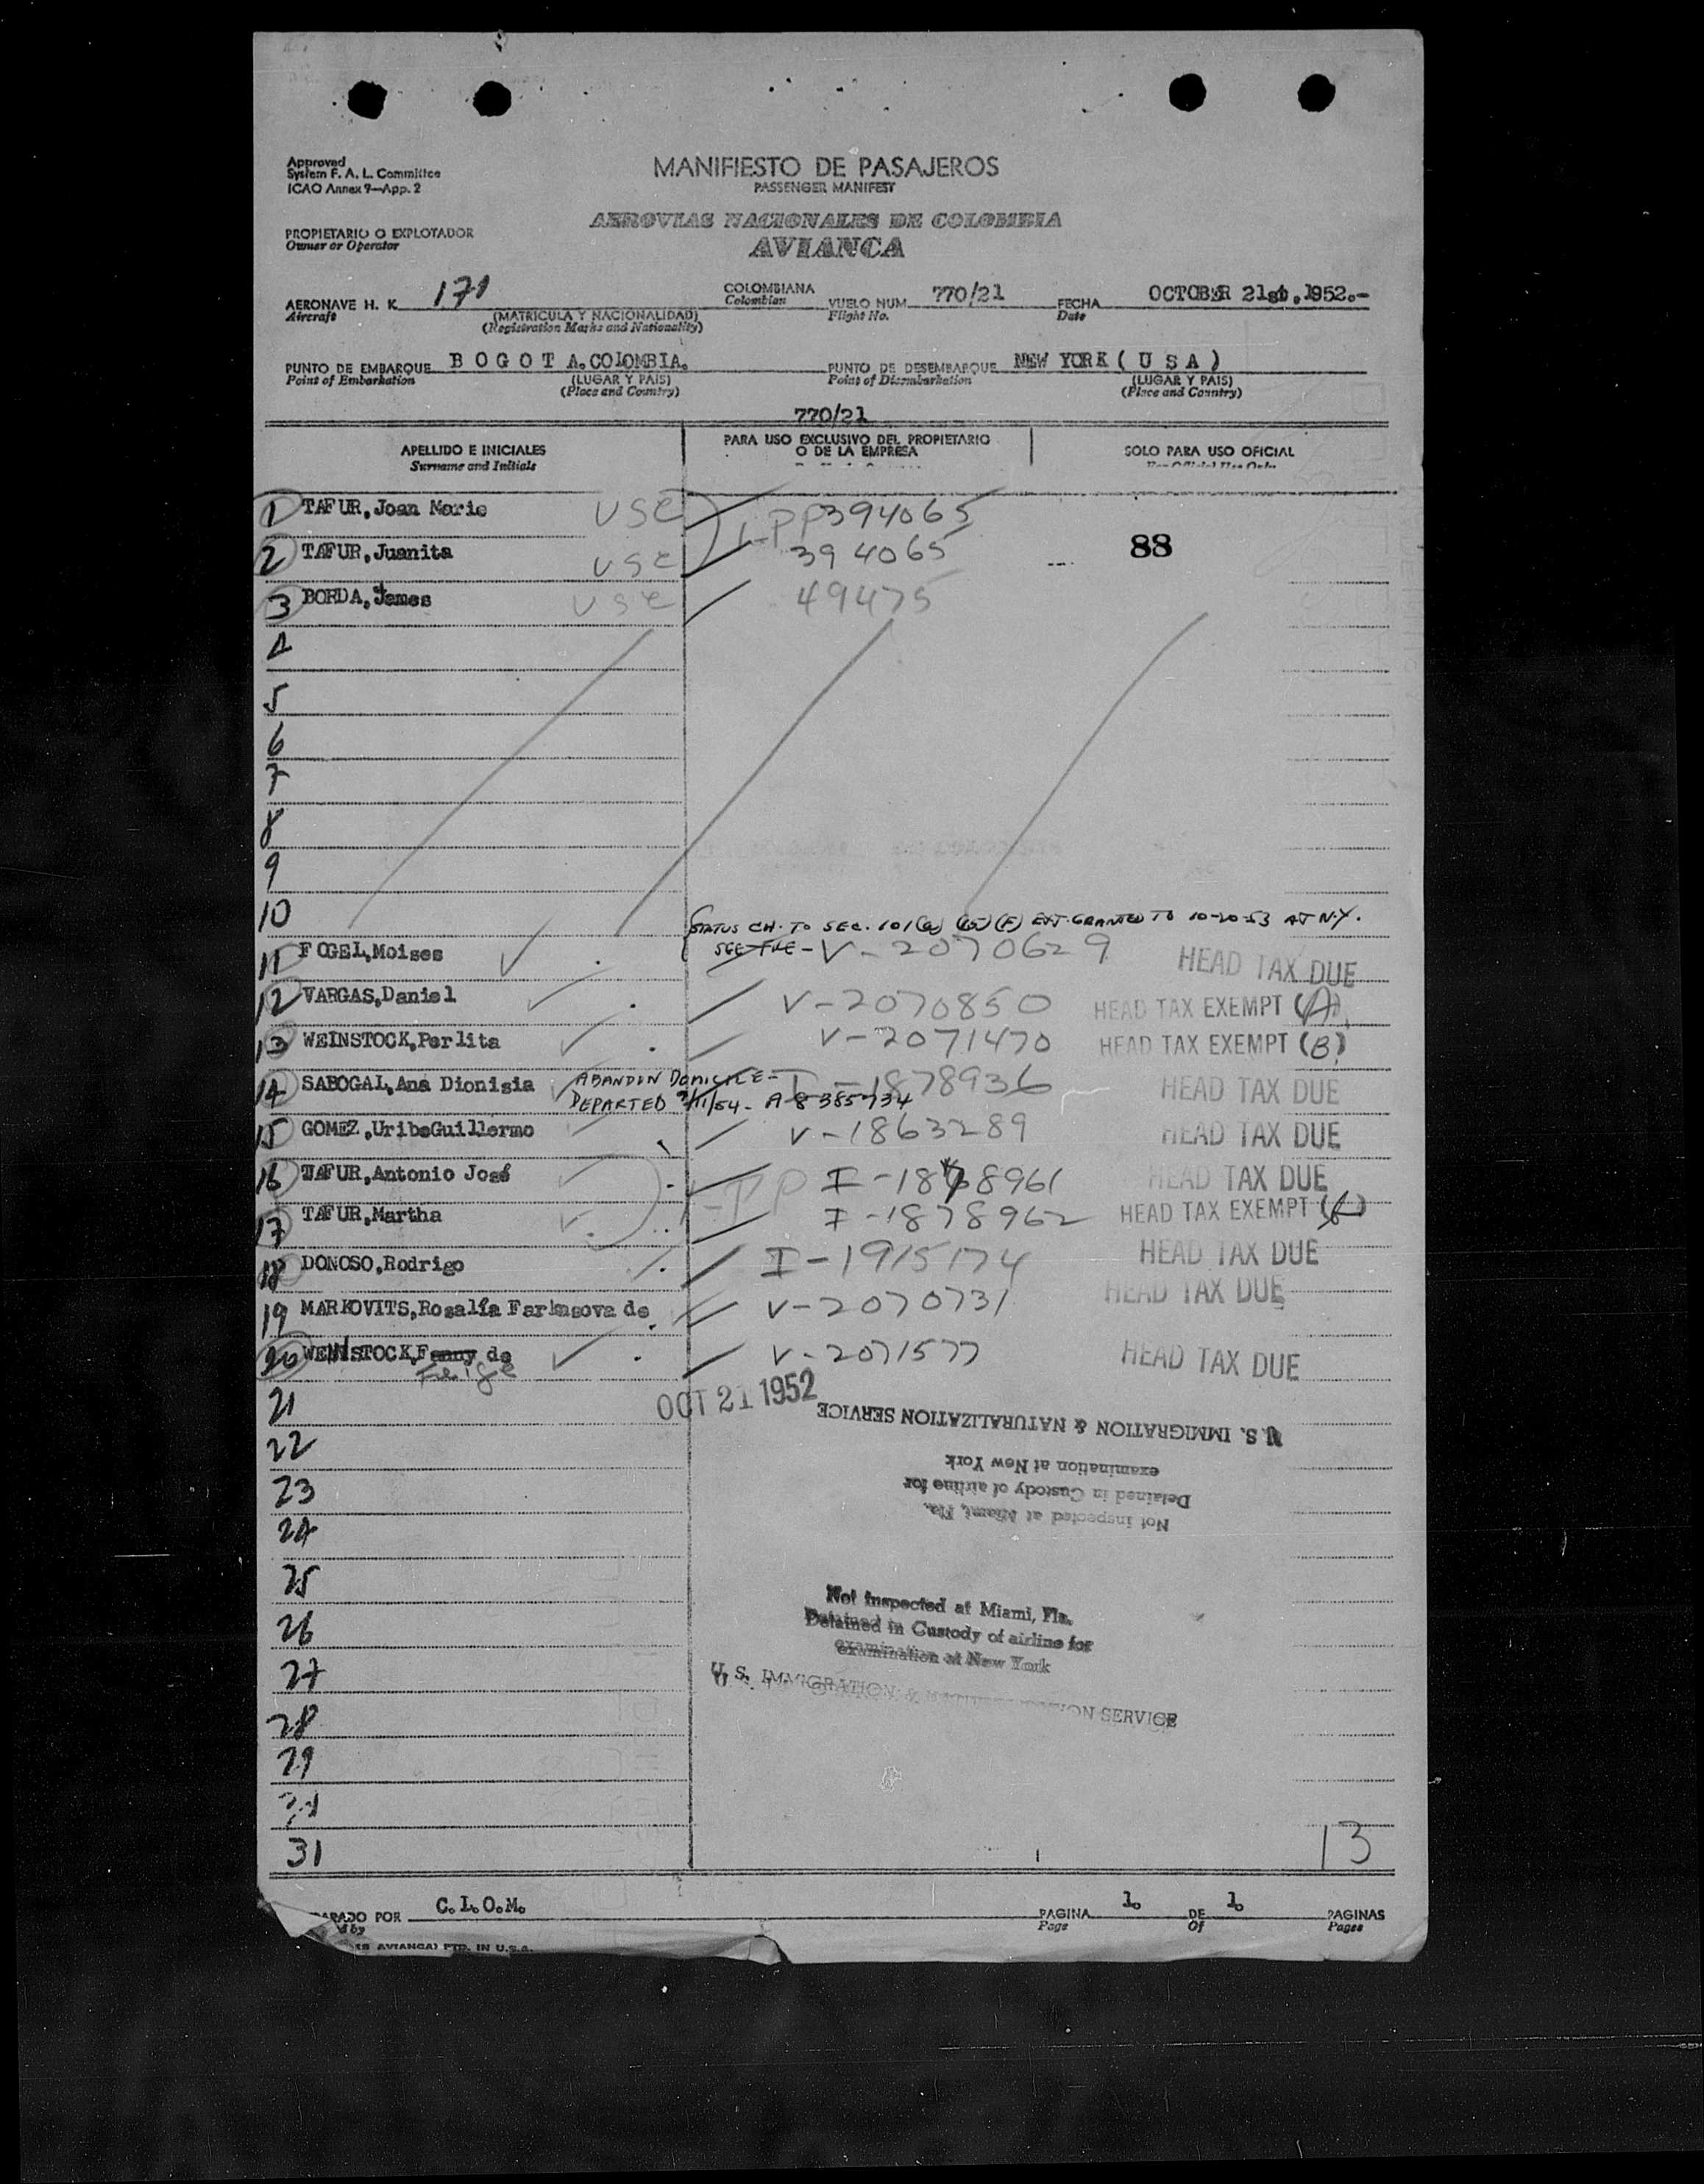 Approved
System F. A. L. Committee
ICAO Annex 9—App. 2
MANIFIESTO DE PASAJEROS
PASSENGER MANIFEST
PROPIETARIO O EXPLOTADOR
Owner or Operator
AEROVIAS NACIONALES DE COLOMBIA
AVIANCA
AERONAVE H. K. 171
Aircraft
(MATRICULA Y NACIONALIDAD)
(Registration Marks and Nationality)
COLOMBIANA
Colombian
VUELO NUM. 770/21
Flight No.
FECHA OCTOBER 21st, 1952.-
Date
PUNTO DE EMBARQUE B O G O T A. COLOMBIA.
Point of Embarkation
(LUGAR Y PAIS)
(Place and Country)
PUNTO DE DESEMBARQUE NEW YORK ( U S A )
Point of Disembarkation
(LUGAR Y PAIS)
(Place and Country)
770/21
APELLIDO E INICIALES
Surname and Initials
PARA USO EXCLUSIVO DEL PROPIETARIO
O DE LA EMPRESA
SOLO PARA USO OFICIAL
For Official Use Only
1 TAFUR, Joan Marie USC PP394065
2 TAFUR, Juanita USC 394065 88
3 BORDA, James USC 49475
4
5
6
7
8
9
10
STATUS CH. TO SEC. 101(a) (15) (F) EXT. GRANTED TO 10-20-53 AT N.Y.
SEE FILE -
11 FOGEL, Moises V-2070629 HEAD TAX DUE
12 VARGAS, Daniel V-2070850 HEAD TAX EXEMPT (A)
13 WEINSTOCK, Perlita V-2071470 HEAD TAX EXEMPT (B)
14 SABOGAL, Ana Dionisia ABANDON DOMICILE - I-1878936 HEAD TAX DUE
DEPARTED 3/11/54 - A 8 385734
15 GOMEZ, UribeGuillermo V-1863289 HEAD TAX DUE
16 TAFUR, Antonio José 1-PP I-1878961 HEAD TAX DUE
17 TAFUR, Martha I-1878962 HEAD TAX EXEMPT
18 DONOSO, Rodrigo I-1915174 HEAD TAX DUE
19 MARKOVITS, Rosalía Farkasova de V-2070731 HEAD TAX DUE
20 WEINSTOCK, Fanny de V-2071577 HEAD TAX DUE
Feige
21
OCT 21 1952
U. S. IMMIGRATION & NATURALIZATION SERVICE
22
examination at New York
23
Detained in Custody of airline for
Not inspected at Miami, Fla.
24
25
Not inspected at Miami, Fla.
26
Detained in Custody of airline for
examination at New York
27
U. S. IMMIGRATION & NATURALIZATION SERVICE
28
29
31
13
PARADO POR C.L.O.M.
d by
PAGINA 1. DE 1. PAGINAS
Page Of Pages
(S AVIANCA) PTD. IN U.S.A.